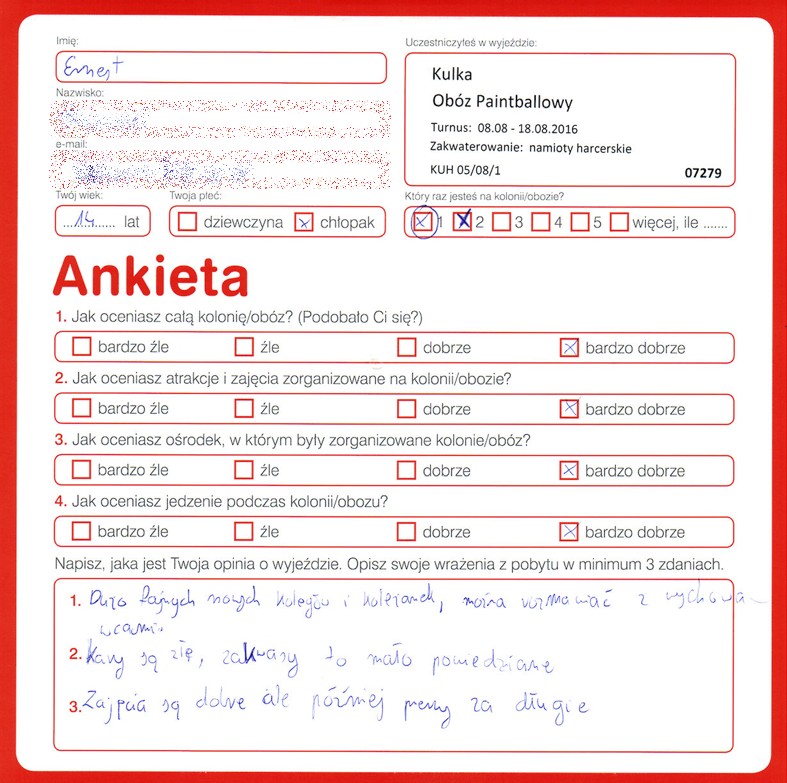 Imię:
Ernest
Uczestniczyłeś w wyjeździe:
Kulka
Obóz Paintballowy
Turnus: 08.08 - 18.08.2016
Zakwaterowanie: namioty harcerskie
KUH 05/08/1 07279
Nazwisko:
e-mail:
Twój wiek:
14 lat
Twoja płeć:
dziewczyna chłopak
Który raz jesteś na kolonii/obozie?
1 2 3 4 5 więcej, ile .......
Ankieta
1. Jak oceniasz całą kolonię/obóz? (Podobało Ci się?)
bardzo źle źle dobrze bardzo dobrze
2. Jak oceniasz atrakcje i zajęcia zorganizowane na kolonii/obozie?
bardzo źle źle dobrze bardzo dobrze
3. Jak oceniasz ośrodek, w którym były zorganizowane kolonie/obóz?
bardzo źle źle dobrze bardzo dobrze
4. Jak oceniasz jedzenie podczas kolonii/obozu?
bardzo źle źle dobrze bardzo dobrze
Napisz, jaka jest Twoja opinia o wyjeździe. Opisz swoje wrażenia z pobytu w minimum 3 zdaniach.
1. Dużo fajnych nowych kolegów i koleżanek, można rozmawiać z wychowa-
wcami
2. Kary są złe, zakwasy to mało powiedziane
3. Zajęcia są dobre ale później przerwy za długie